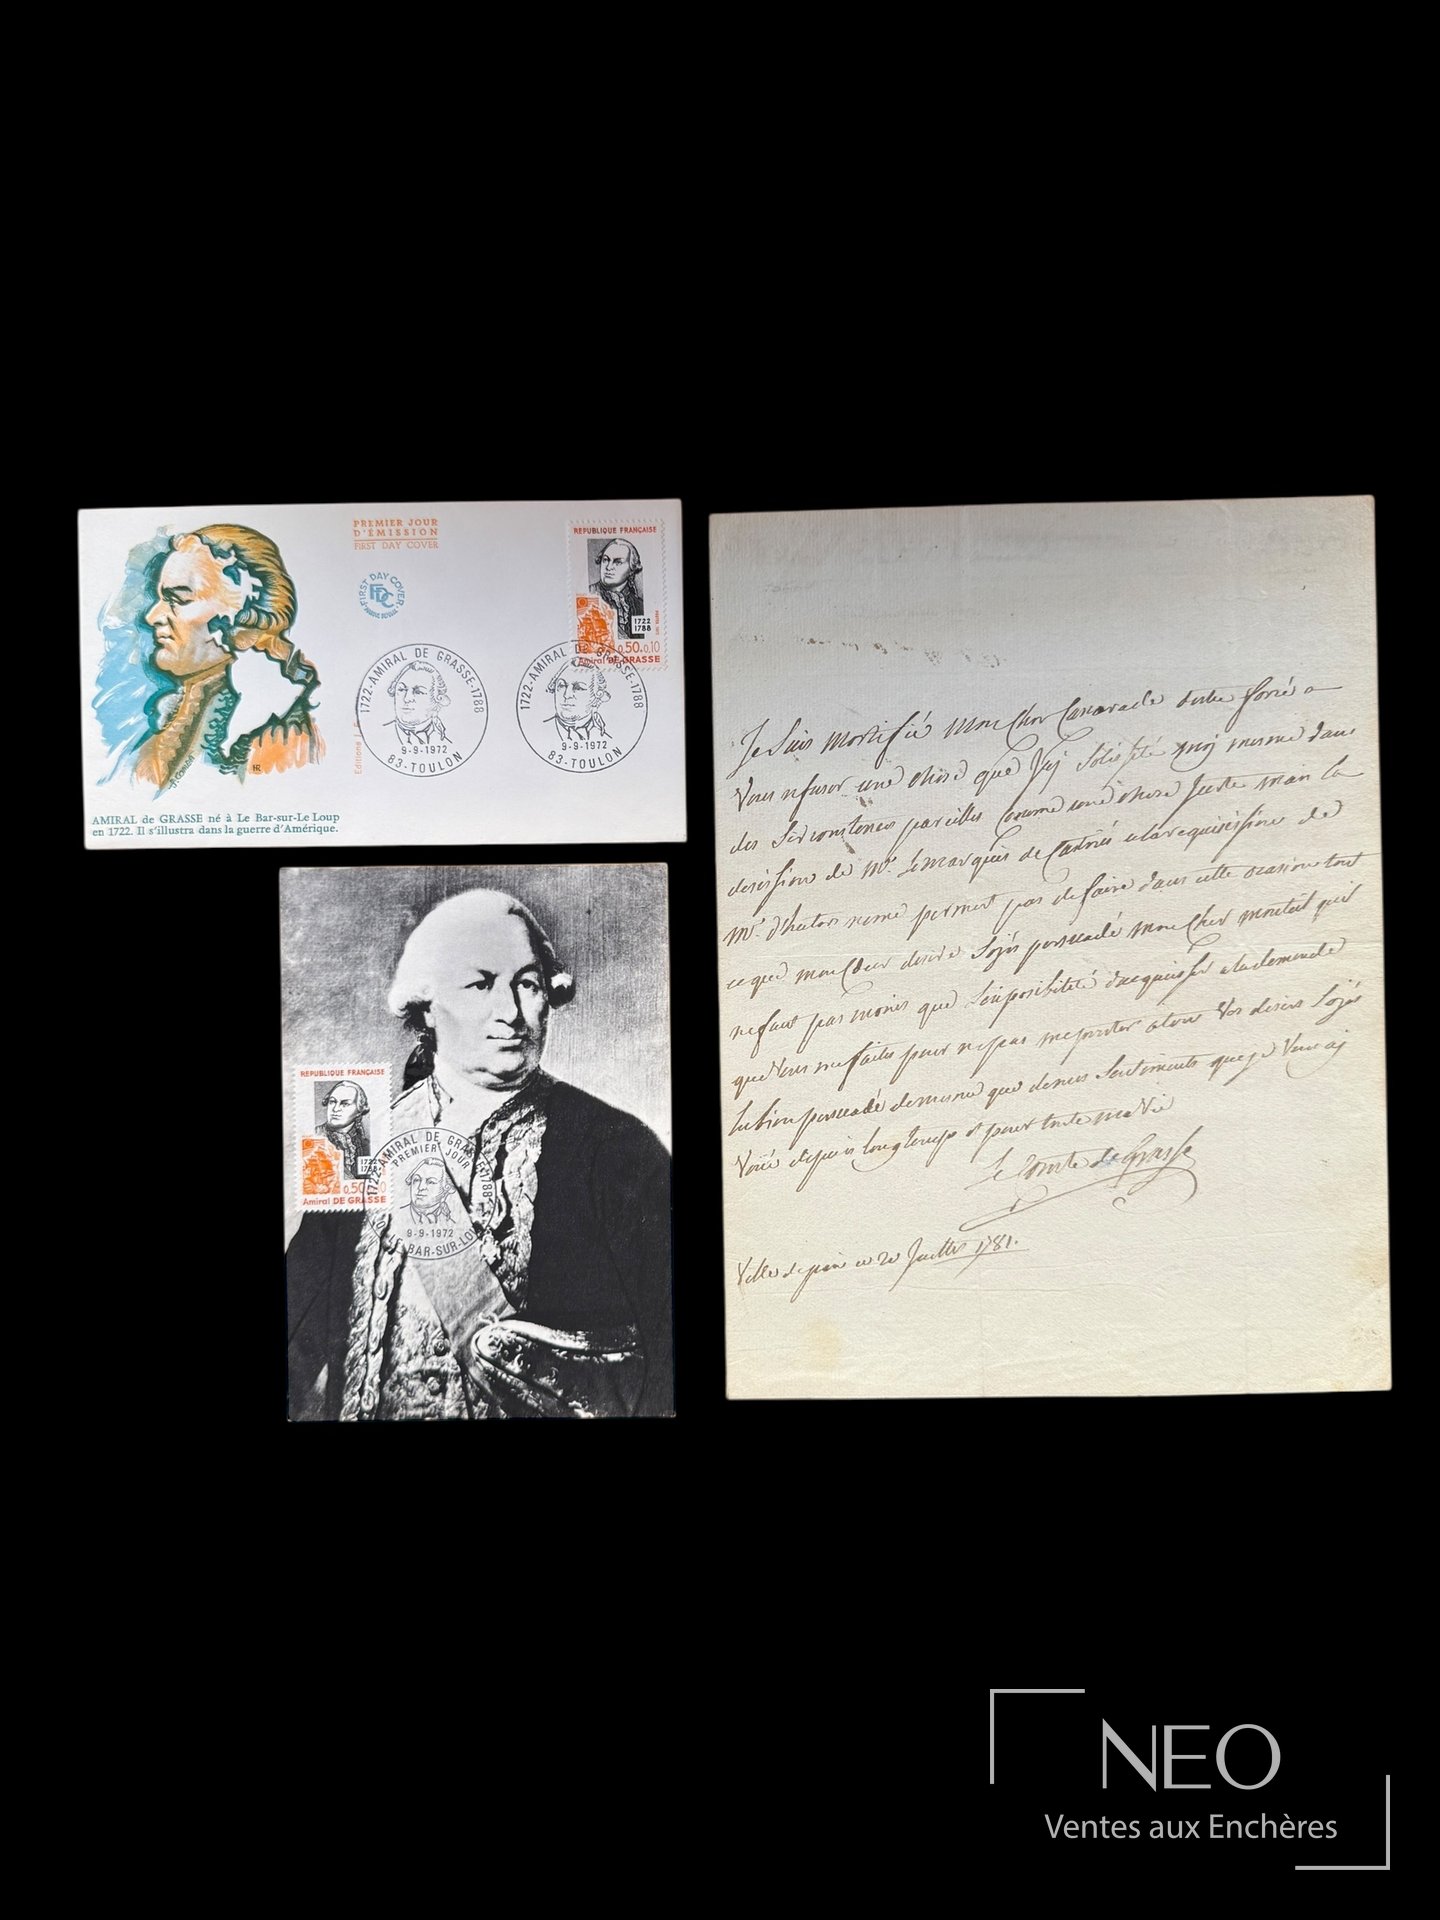 PREMIER JOUR
D'ÉMISSION
FIRST DAY COVER
FIRST DAY COVER
FDC
REPUBLIQUE FRANÇAISE
1722
1788
0,50+0,10
Amiral DE GRASSE
1722-AMIRAL DE GRASSE-1788
9-9-1972
83-TOULON
1722-AMIRAL DE GRASSE-1788
9-9-1972
83-TOULON
Editions J.F.
J. Combet
HR
AMIRAL de GRASSE né à Le Bar-sur-Le Loup
en 1722. Il s'illustra dans la guerre d'Amérique.
REPUBLIQUE FRANÇAISE
1722
1788
0,50
Amiral DE GRASSE
1722-AMIRAL DE GRASSE-1788
PREMIER JOUR
9-9-1972
LE BAR-SUR-LOUP
Je Suis Mortifié Mon Cher Camarade detre forcé a
Vous refuser une chose que Jaj Solicité moj mesme dans
des Sirconstences pareilles Comme une chose Juste mais la
desission de Mr. Le Marquis de Castries et la requisission de
Mr. d'hector ne me permet pas de faire dans cette ocasion tout
ce que mon Coeur desire Sojés persuadé mon Cher monteil quil
ne faut pas moins que Linposibilité dacquiesser a la demende
que Vous me faites pour ne pas me prester a tous Vos desirs Sojés
bien persuadé de mesme que de mes Sentiments que je Vous aj
Voüé depuis longtemps et pour toute ma Vie
Le Comte de Grasse
Ville de paris ce 20 Juillet 1781.
NEO
Ventes aux Enchères